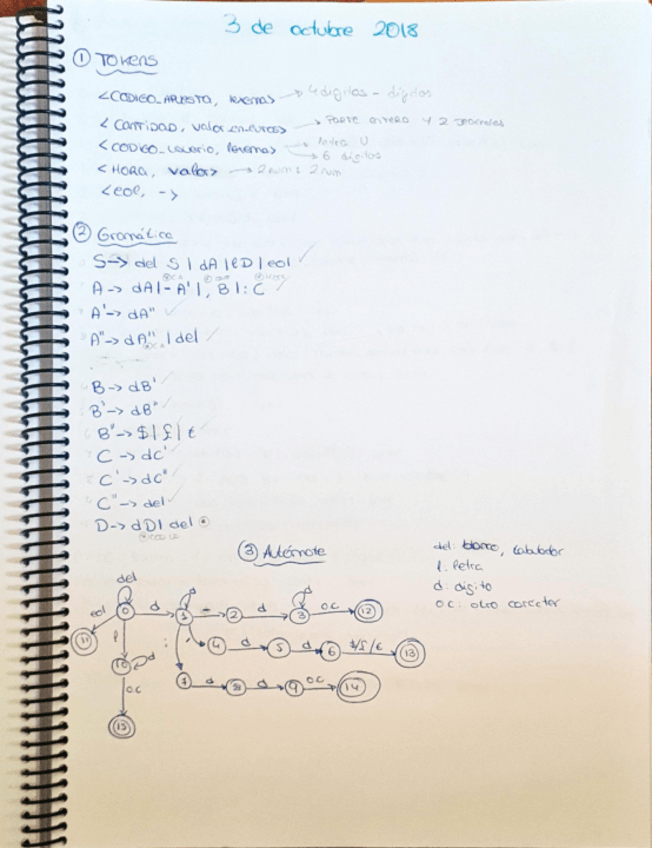 3 de octubre 2018
① Tokens
<CODIGO_APUESTA, lexema> → 4 dígitos - dígitos
<CANTIDAD, valor en euros> → Parte entera y 2 decimales
<CODIGO_usuario, lexema> → letra U
→ 6 dígitos
<HORA, valor> → 2 num : 2 num
<eol, ->
② Gramática
S → del S | dA | lD | eol
A → dA | - A' | , B | : C
A' → dA"
A" → dA" | del
B → dB'
B' → dB"
B" → $ | £ | €
C → dC'
C' → dC"
C" → del
D → dD | del
③ Autómata
del: blanco, tabulador
l: letra
d: dígito
oc: otro carácter
del
eol 0 d 1 d - 2 d 3 d oc 12
11 l : , 4 d 5 d 6 $/£/€ 13
10 d 7 d 8 d 9 oc 14
oc
15